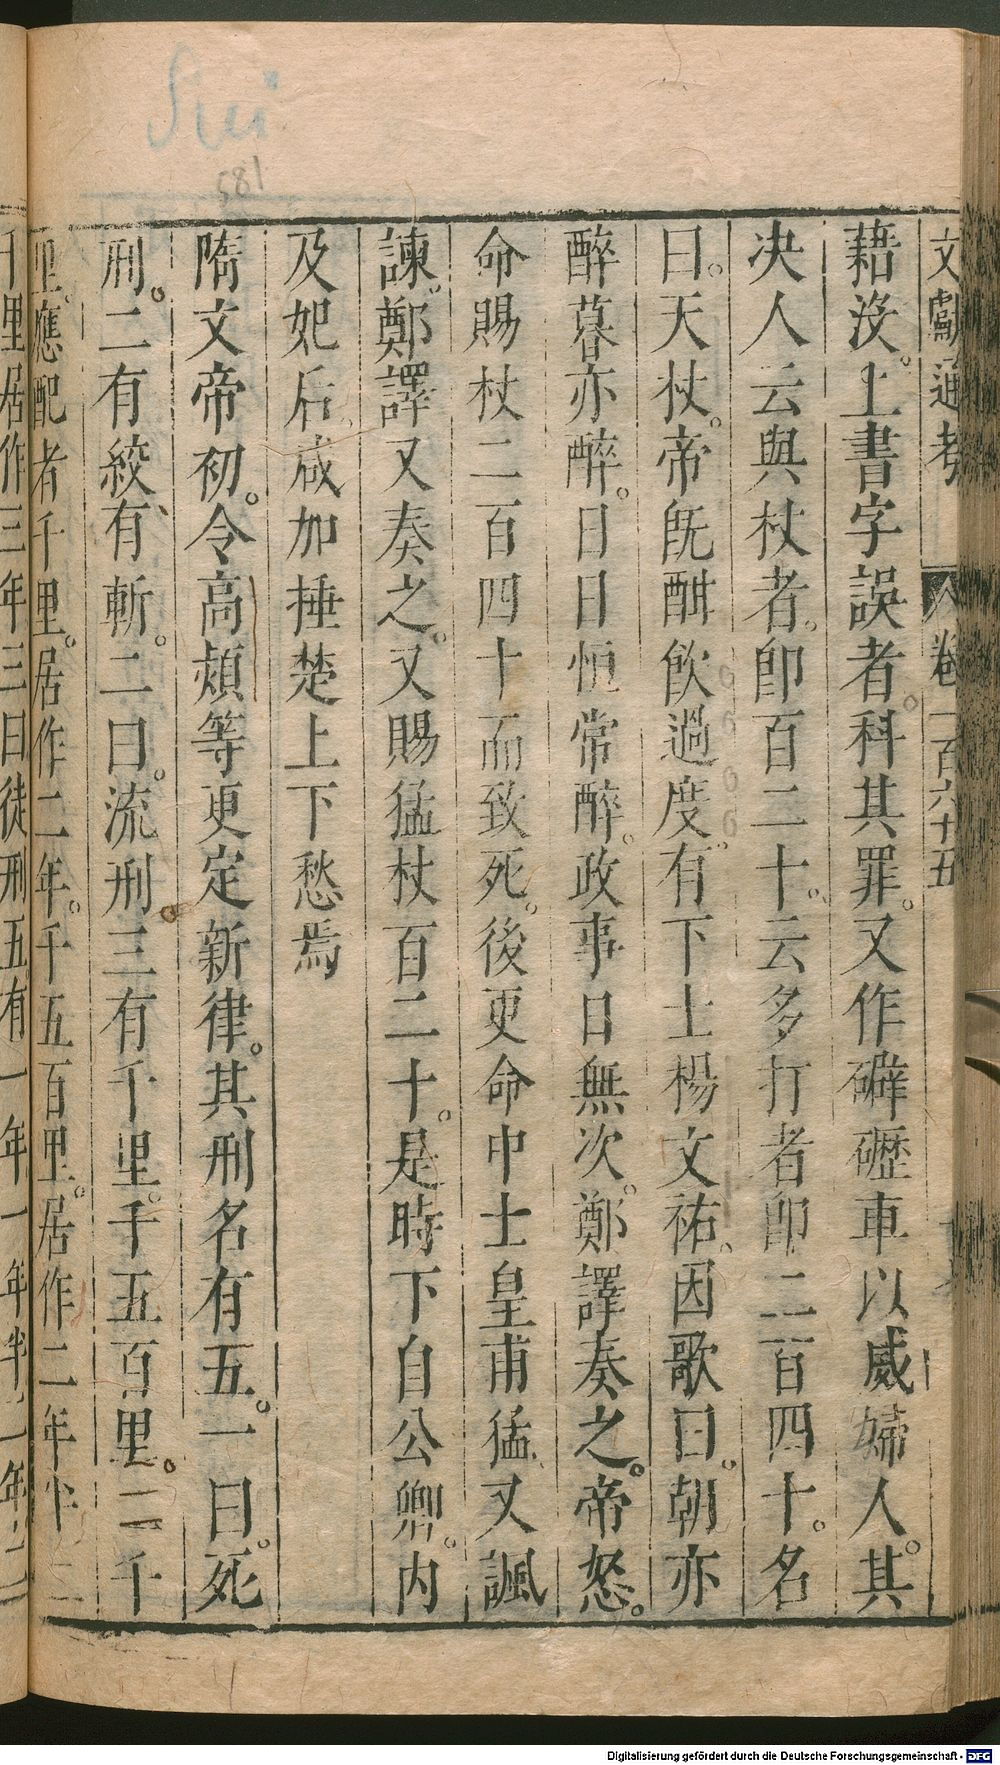 Sui
581
文獻通考 卷一百六十五
藉沒。上書字誤者。科其罪。又作礔礰車以威婦人。其
决人云與杖者。卽百二十。云多打者卽二百四十。名
曰。天杖。帝旣酣飲過度。有下士楊文祐。因歌曰。朝亦
醉暮亦醉。日日恒常醉。政事日無次。鄭譯奏之。帝怒。
命賜杖二百四十而致死。後更命中士皇甫猛、又諷
諫。鄭譯又奏之。又賜猛杖百二十。是時下自公卿。內
及妃后。咸加捶楚上下愁焉
隋文帝初。令高熲等更定新律。其刑名有五。一曰。死
刑。二有絞、有斬。二曰。流刑三有千里。千五百里。二千
里。應配者千里。居作二年。千五百里。居作二年半二
千里居作三年三曰徒刑五有一年一年半二年二
Digitalisierung gefördert durch die Deutsche Forschungsgemeinschaft - DFG